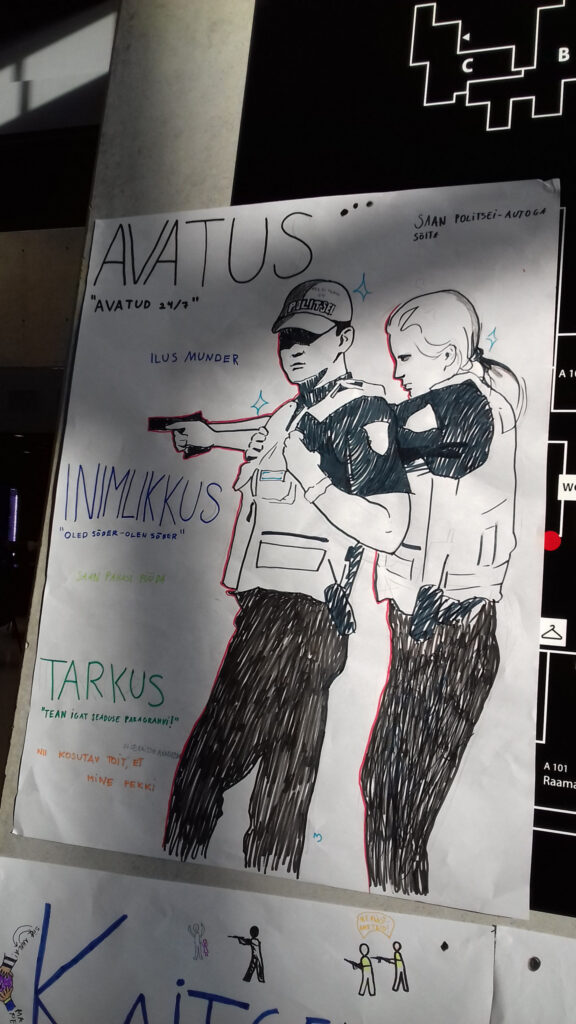 C
B
AVATUS ...
SAAN POLITSEI-AUTOGA
SÕITA
"AVATUD 24/7"
POLITSEI
ILUS MUNDER
INIMLIKKUS
"OLED SÕBER-OLEN SÕBER"
SAAN PAHUSI PÜÜDA
TARKUS
"TEAN IGAT SEADUSE PARAGRAHVI!"
NII KOSUTAV TOIT, ET
MINE PEKKI
A 10
A 101
Raama
KAITSE